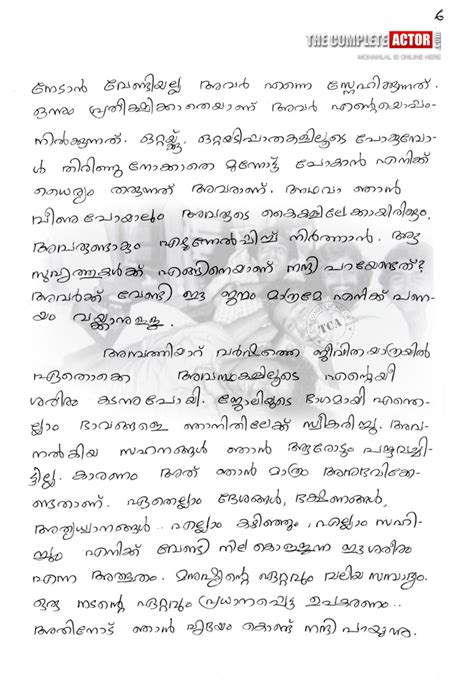 6
THE COMPLETE ACTOR .COM
MOHANLAL IS ONLINE HERE
നേടാൻ വേണ്ടിയല്ല അവർ എന്നെ സ്നേഹിക്കുന്നത്.
ഒന്നും പ്രതീക്ഷിക്കാതെയാണ് അവർ എന്റെയൊപ്പം
നിൽക്കുന്നത്. ഒറ്റയ്ക്ക്, ഒറ്റയടിപ്പാതകളിലൂടെ പോകുമ്പോ-
ൾ തിരിഞ്ഞു നോക്കാതെ മുന്നോട്ട് പോകാൻ എനിക്ക്
ധൈര്യം തരുന്നത് അവരാണ്. അഥവാ ഞാൻ
വീണുപോയാലും അവരുടെ കൈകളിലേക്കായിരിക്കും,
അവരുണ്ടാകും എഴുന്നേൽപ്പിച്ച് നിർത്താൻ. ആ
സുഹൃത്തുക്കൾക്ക് എങ്ങിനെയാണ് നന്ദി പറയേണ്ടത്?
അവർക്ക് വേണ്ടി ഈ ജന്മം മാത്രമേ എനിക്ക് പണ-
യം വയ്ക്കാനുള്ളൂ.
TCA
അമ്പത്തിയാറ് വർഷത്തെ ജീവിതയാത്രയിൽ
ഏതൊക്കെ അവസ്ഥകളിലൂടെ എന്റെയീ
ശരീരം കടന്നുപോയി. ജോലിയുടെ ഭാഗമായി എന്തെ-
ല്ലാം ഭാവങ്ങളെ ഞാനിതിലേക്ക് സ്വീകരിച്ചു. അവ-
നൽകിയ സഹനങ്ങൾ ഞാൻ ആരോടും പങ്കുവച്ചി-
ട്ടില്ല. കാരണം അത് ഞാൻ മാത്രം അനുഭവിക്കേ-
ണ്ടതാണ്. ഏതെല്ലാം ദേശങ്ങൾ, ഭക്ഷണങ്ങൾ,
അത്യധ്വാനങ്ങൾ.. എല്ലാം കഴിഞ്ഞും, എല്ലാം സഹി-
ച്ചും എനിക്ക് വേണ്ടി നില കൊള്ളുന്ന ഈ ശരീരം
എന്ന അത്ഭുതം. മനുഷ്യന്റെ ഏറ്റവും വലിയ സമ്പാദ്യം.
ഒരു നടന്റെ ഏറ്റവും പ്രധാനപ്പെട്ട ഉപകരണം..
അതിനോട് ഞാൻ ഹൃദയം കൊണ്ട് നന്ദി പറയുന്നു.